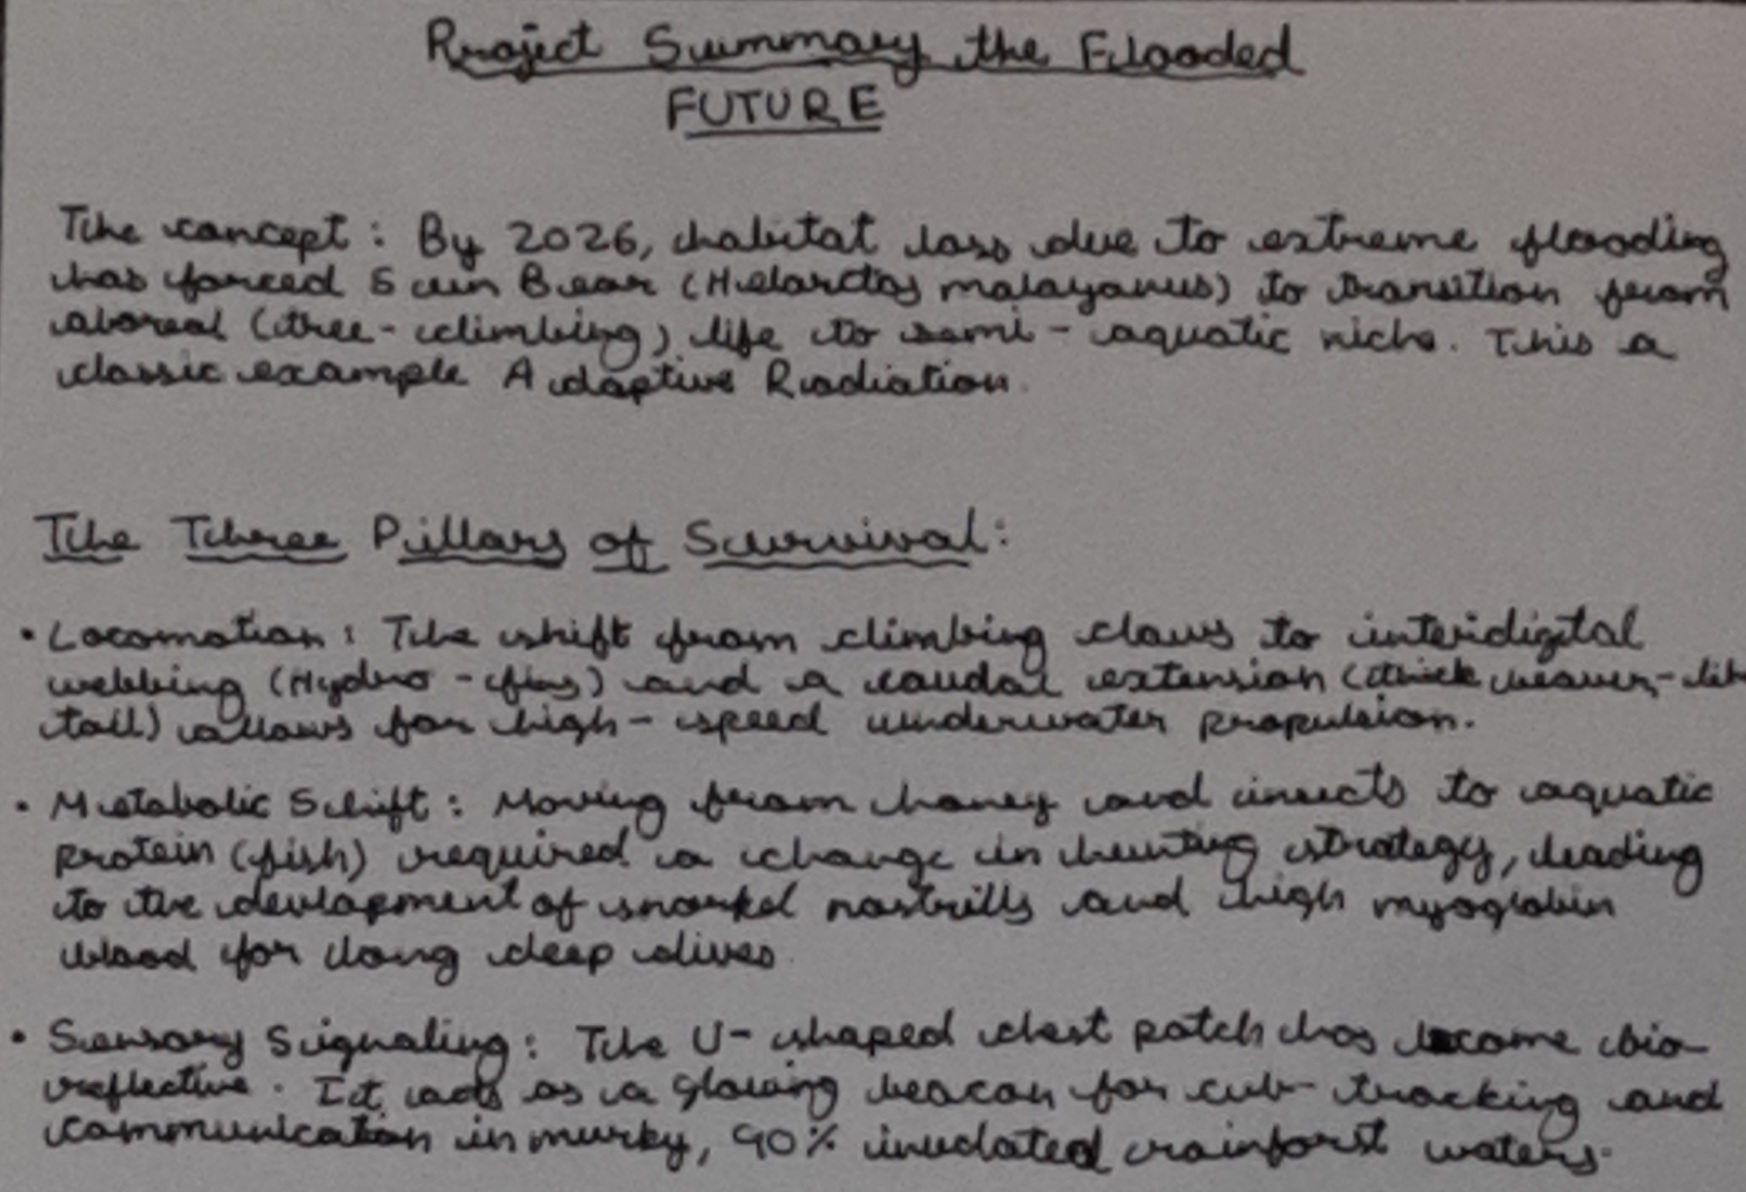 Project Summary the Flooded
FUTURE
The concept : By 2026, habitat loss due to extreme flooding
has forced Sun Bear (Helarctos malayanus) to transition from
aboreal (tree-climbing) life to semi-aquatic niche. This a
classic example Adaptive Radiation
The Three Pillars of Survival:
• Locomotion : The shift from climbing claws to interidigital
webbing (Hydro-fins) and a caudal extension (thick beaver-lik
tail) allows for high-speed underwater propulsion.
• Metabolic Schift : Moving from honey and insects to aquatic
protein (fish) required a change in hunting strategy, leading
to the devlopment of snorkel nostrills and high myoglobin
blood for long deep dives
• Sensory Signaling : The U-shaped chest patch has become bio-
reflective. It acts as a glowing beacon for cub-tracking and
communication in murky, 90% inudated rainforst waters.